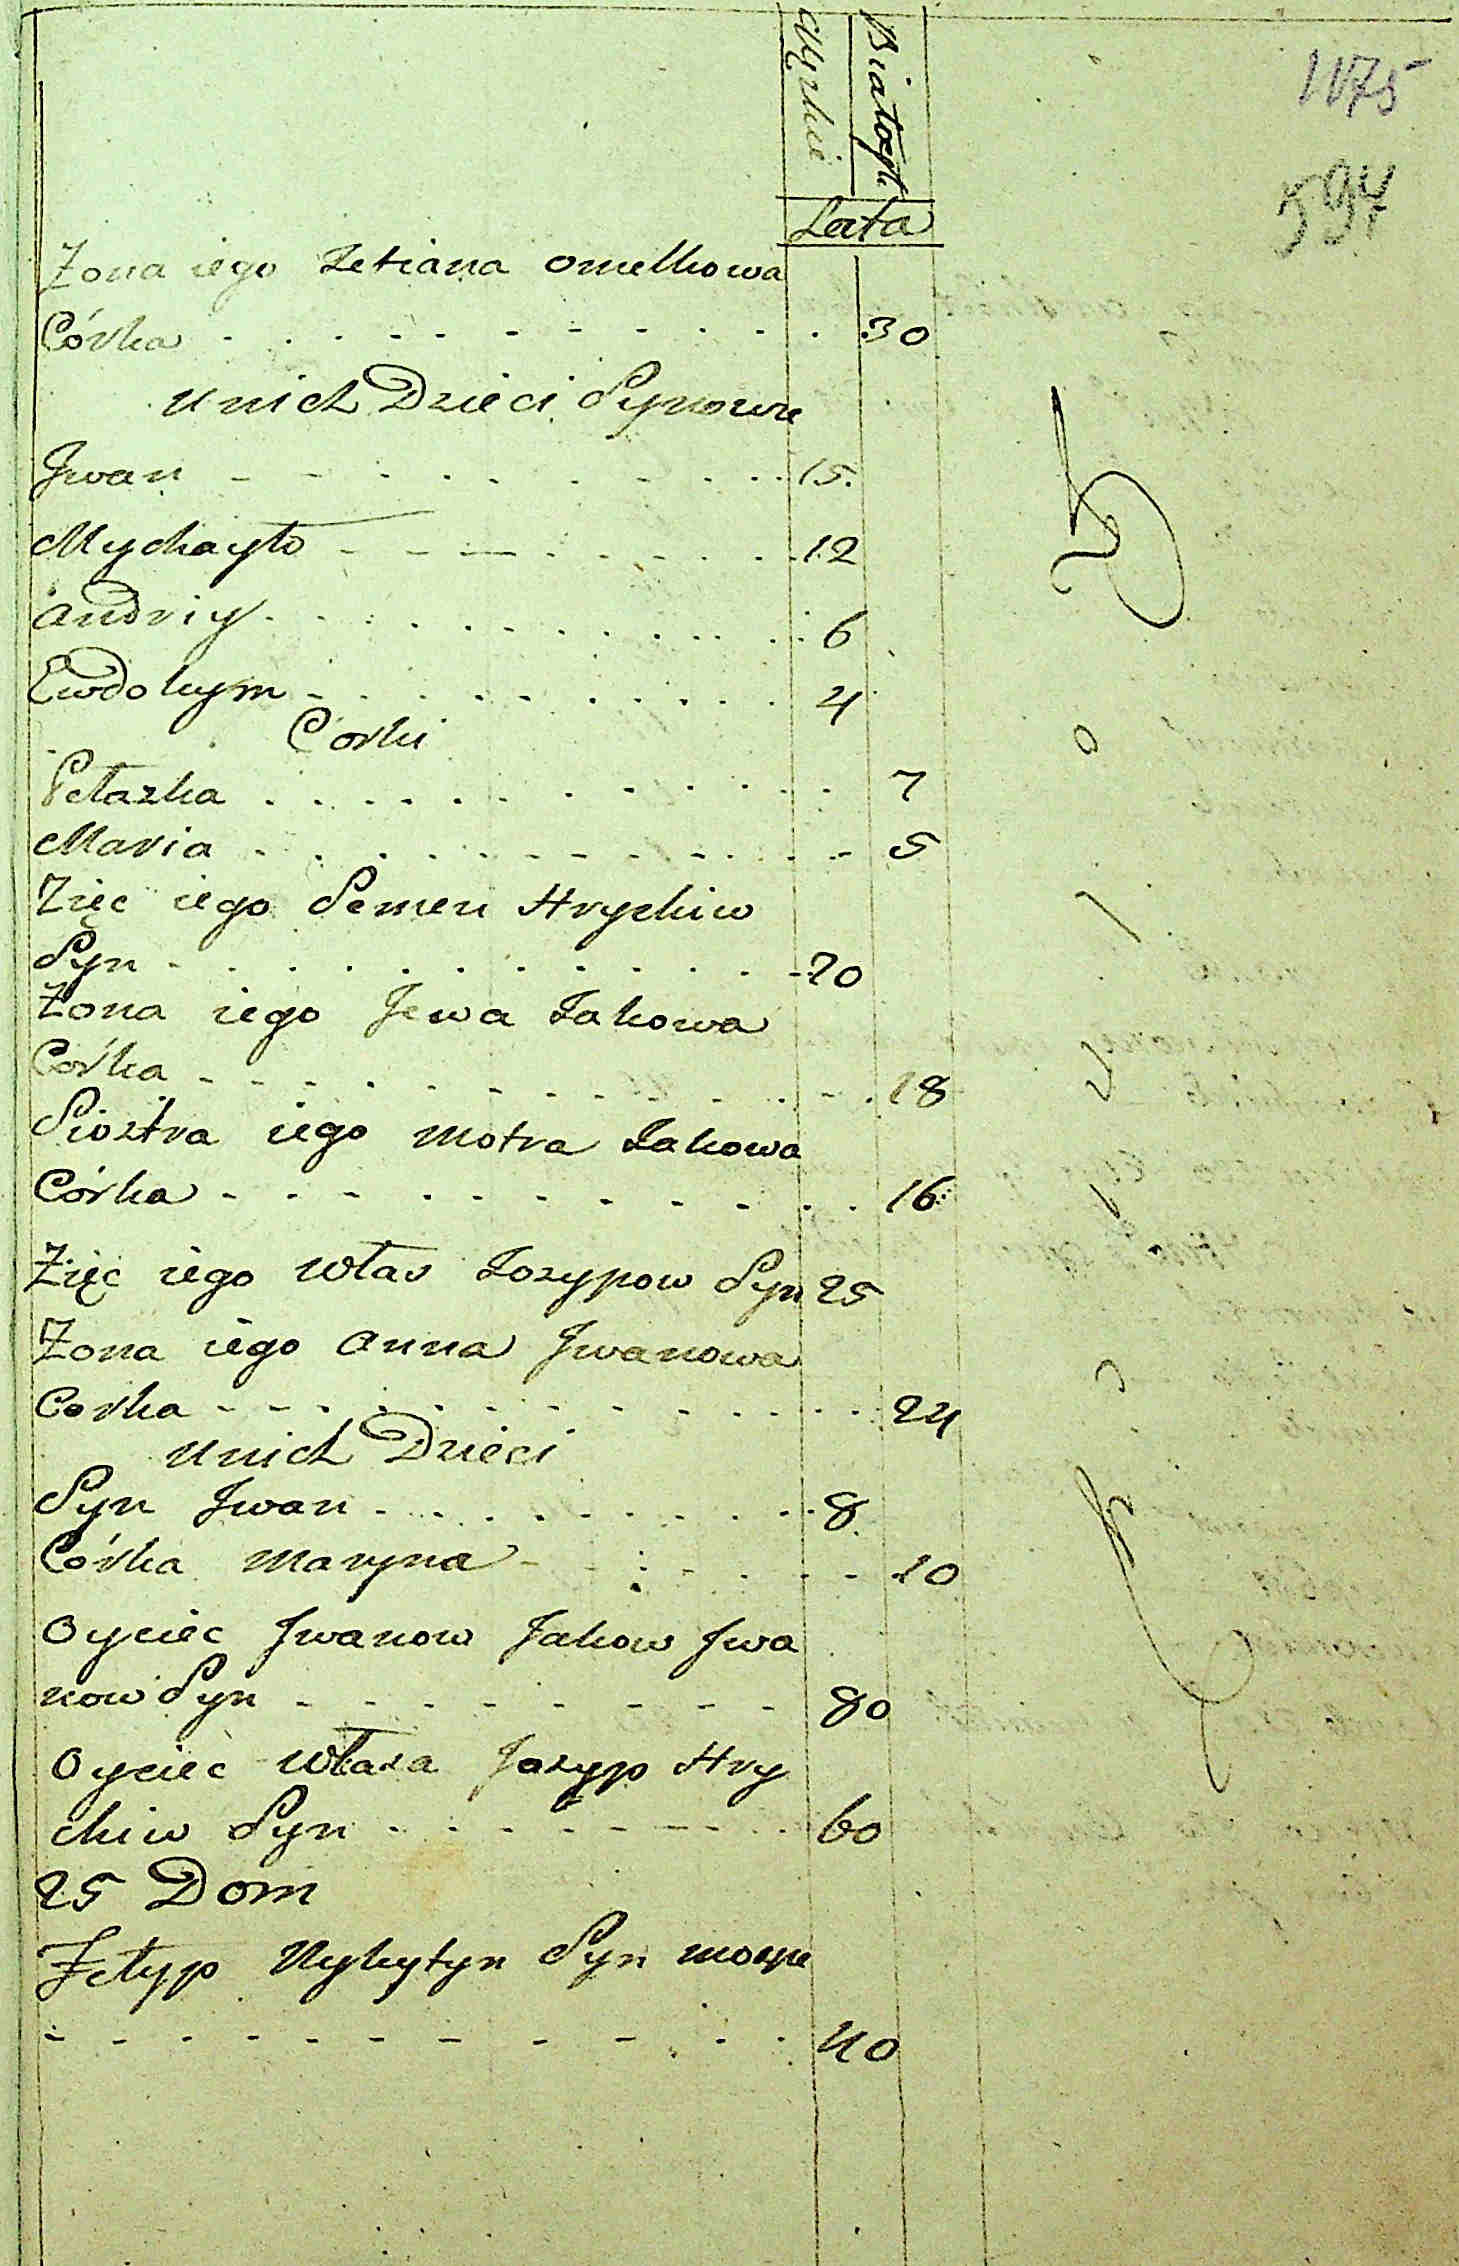 Męzkie
Białogło
1175
594
Lata
Żona iego Tetiana Omelkowa
Córka 30
unich Dzieci Synowie
Jwan 15.
Mychayło 12
Andriy 6
Ewdokym 4
Corki
Pełazka 7
Maria 5
Zięc iego Semen Hryckiw
Syn 20
Żona iego Jewa Jakowa
Corka 18
Siostra iego Motra Jakowa
Córka 16
Zięc iego Włas  Jozypow Syn 25
Żona iego Anna Jwanowa
Corka 24
unich Dzieci
Syn Jwan 8
Córka Maryna 10
Oyciec Jwanow Jakow Jwa
now Syn 80
Oyciec Własa Jozyp Hry
ckiw Syn 60
25 Dom
Fełyp Nykytyn Syn
40